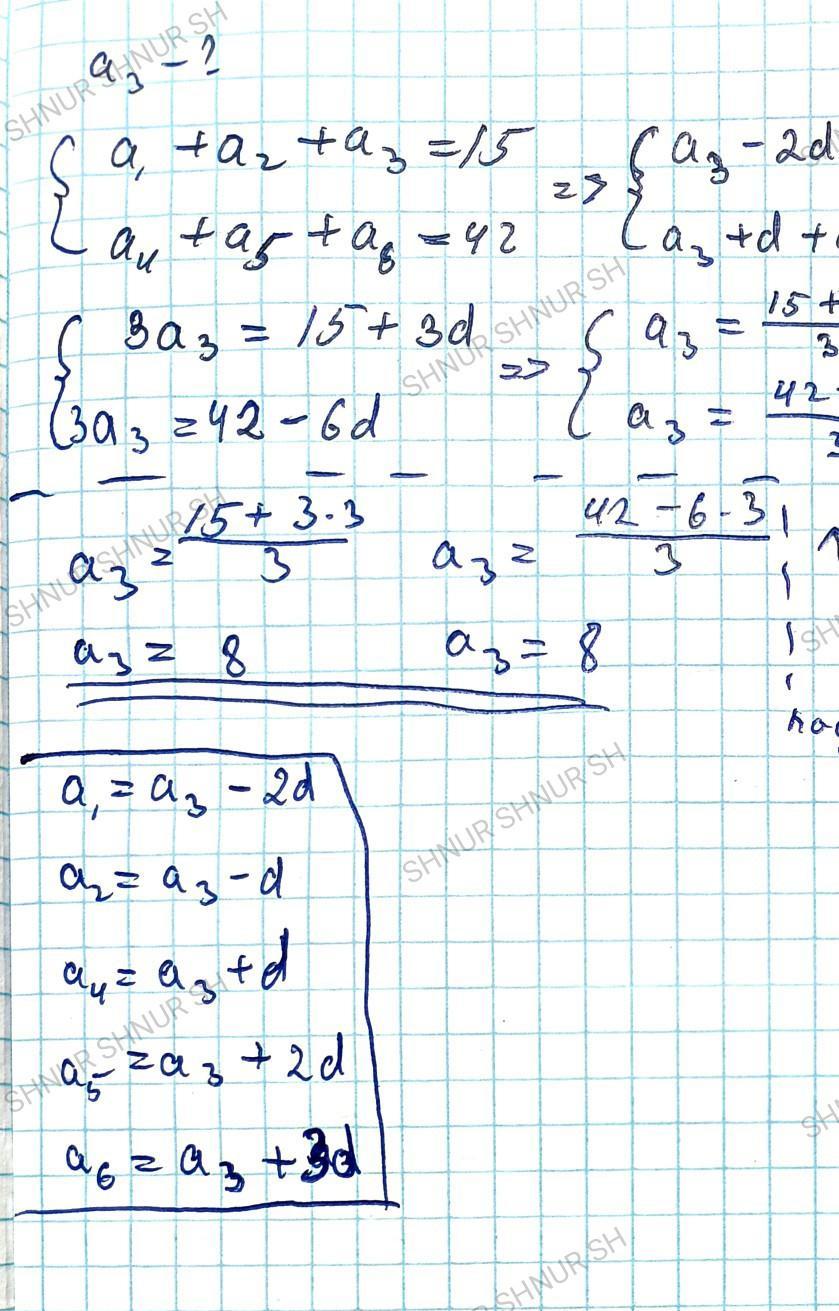 a₃ - ?
{ a₁ + a₂ + a₃ = 15 => { a₃ - 2d
a₄ + a₅ + a₆ = 42 a₃ + d +
{ 3a₃ = 15 + 3d => { a₃ = 15 + / 3
3a₃ = 42 - 6d a₃ = 42 - / 3
a₃ = (15 + 3·3)/3 a₃ = (42 - 6·3)/3
a₃ = 8 a₃ = 8
a₁ = a₃ - 2d
a₂ = a₃ - d
a₄ = a₃ + d
a₅ = a₃ + 2d
a₆ = a₃ + 3d
SHNUR SHNUR SH
SHNUR SHNUR SH
SHNUR SHNUR SH
SHNUR SHNUR SH
SHNUR SHNUR SH
SHNUR SH